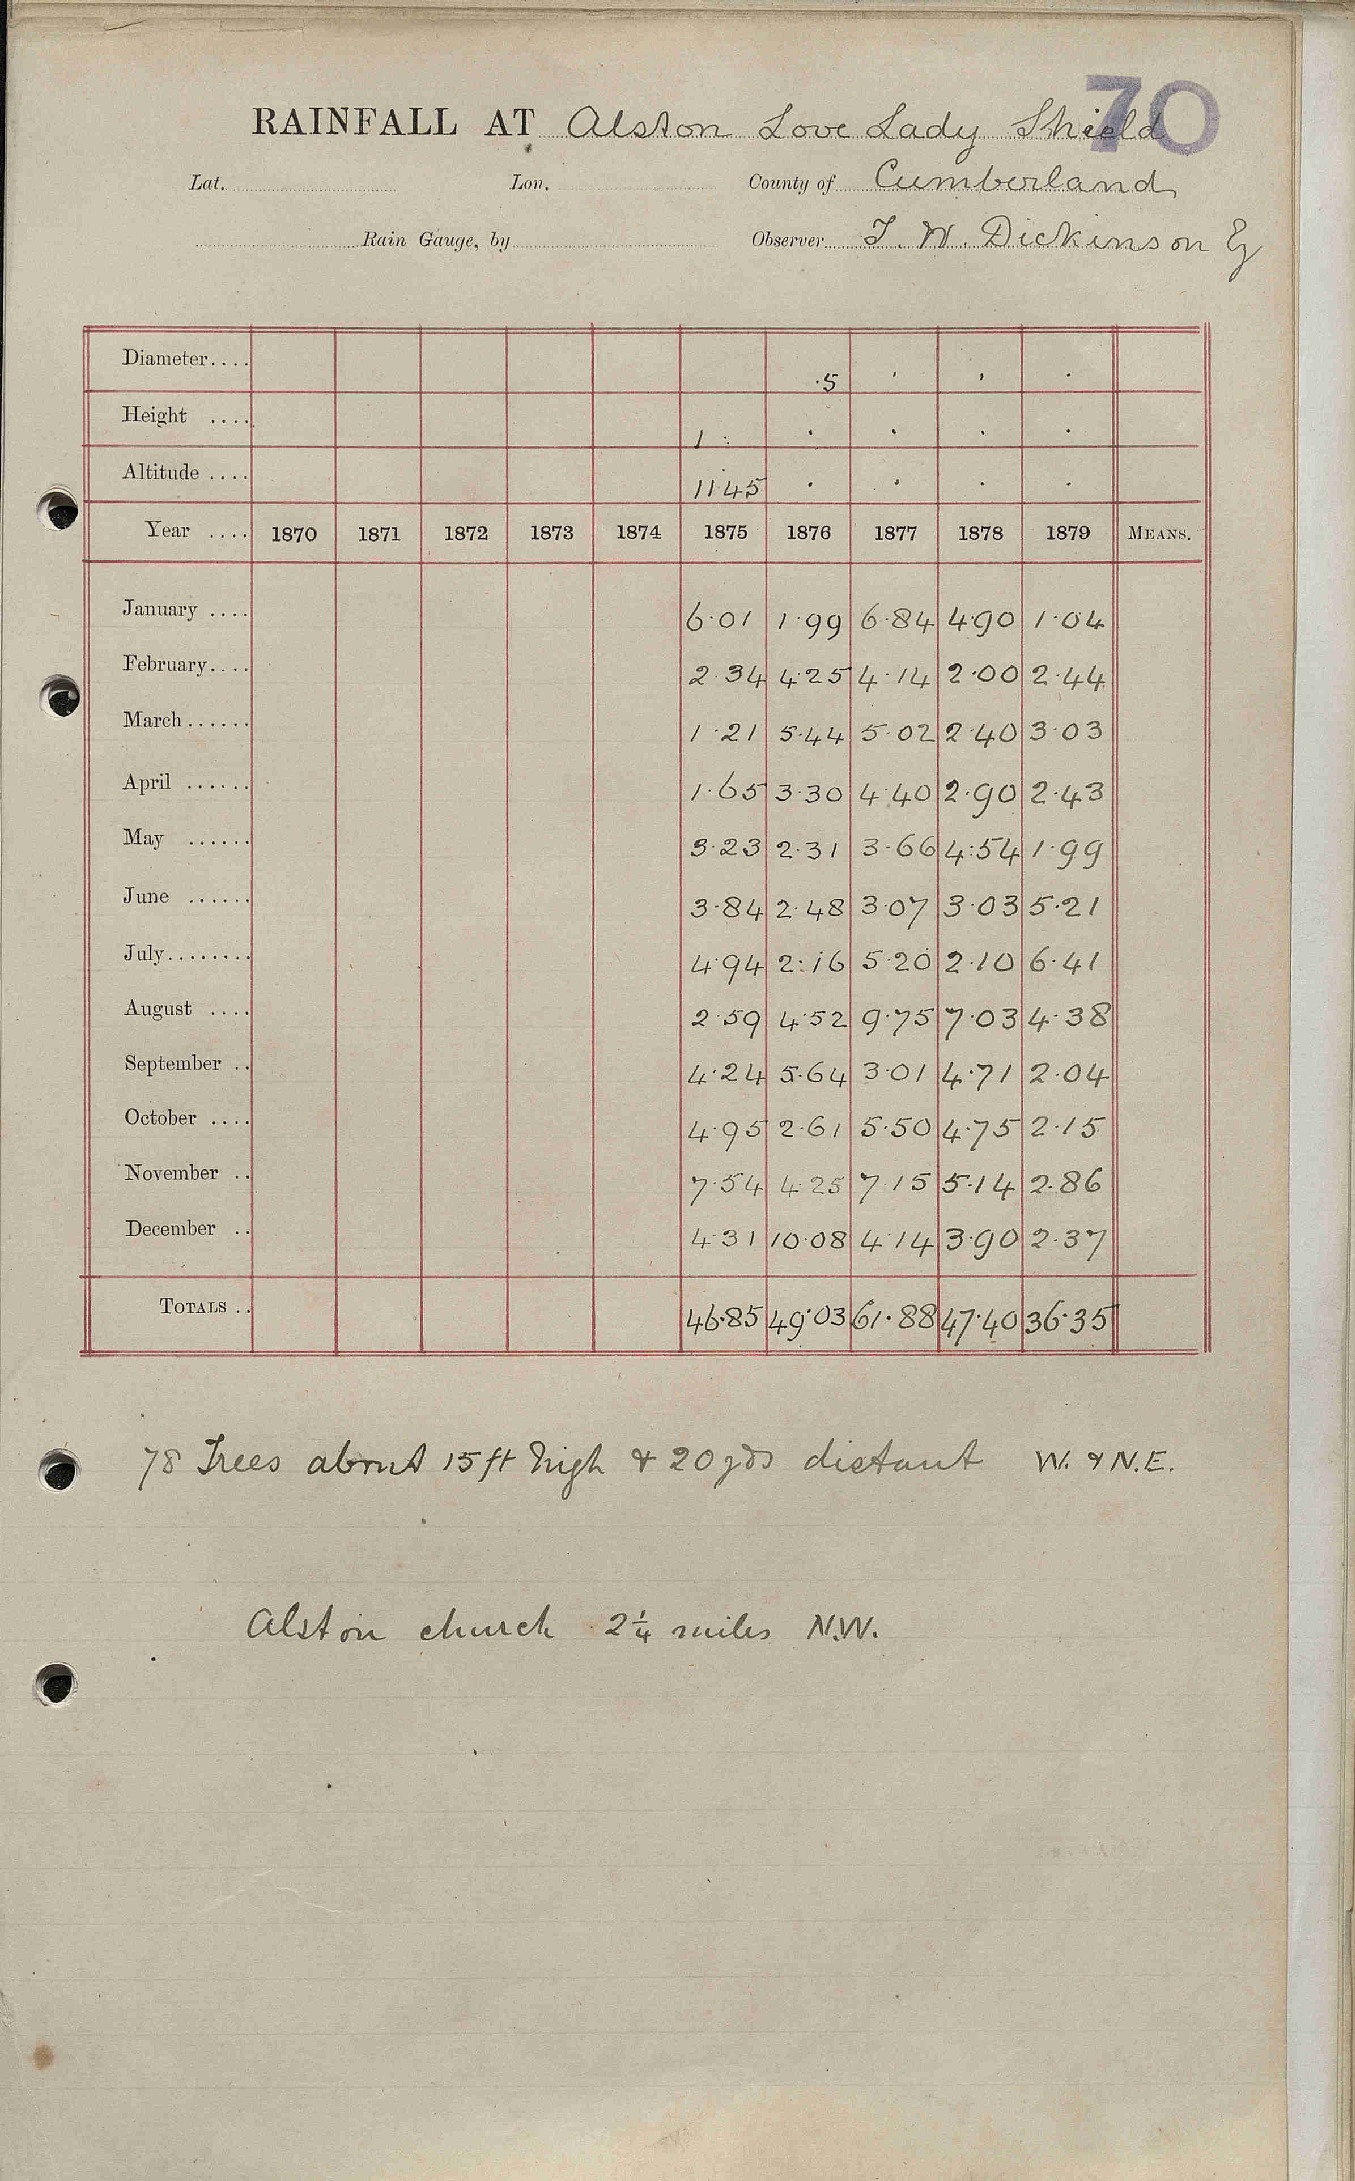 70
RAINFALL AT Alston Love Lady Shield
Lat. Lon. County of Cumberland
Rain Gauge, by Observer T. W. Dickinson Esq
Diameter.... ·5 ' ' ·
Height .... 1 · · · · ·
Altitude .... 1145 · · · ·
Year .... 1870 1871 1872 1873 1874 1875 1876 1877 1878 1879 MEANS.
January .... 6·01 1·99 6·84 4·90 1·04
February.... 2·34 4·25 4·14 2·00 2·44
March...... 1·21 5·44 5·02 2·40 3·03
April ...... 1·65 3·30 4·40 2·90 2·43
May ...... 3·23 2·31 3·66 4·54 1·99
June ...... 3·84 2·48 3·07 3·03 5·21
July........ 4·94 2·16 5·20 2·10 6·41
August .... 2·59 4·52 9·75 7·03 4·38
September .. 4·24 5·64 3·01 4·71 2·04
October .... 4·95 2·61 5·50 4·75 2·15
November .. 7·54 4·25 7·15 5·14 2·86
December .. 4·31 10·08 4·14 3·90 2·37
TOTALS .. 46·85 49·03 61·88 47·40 36·35
78 Trees about 15 ft high & 20 yds distant W. & N.E.
Alston church 2¼ miles N.W.